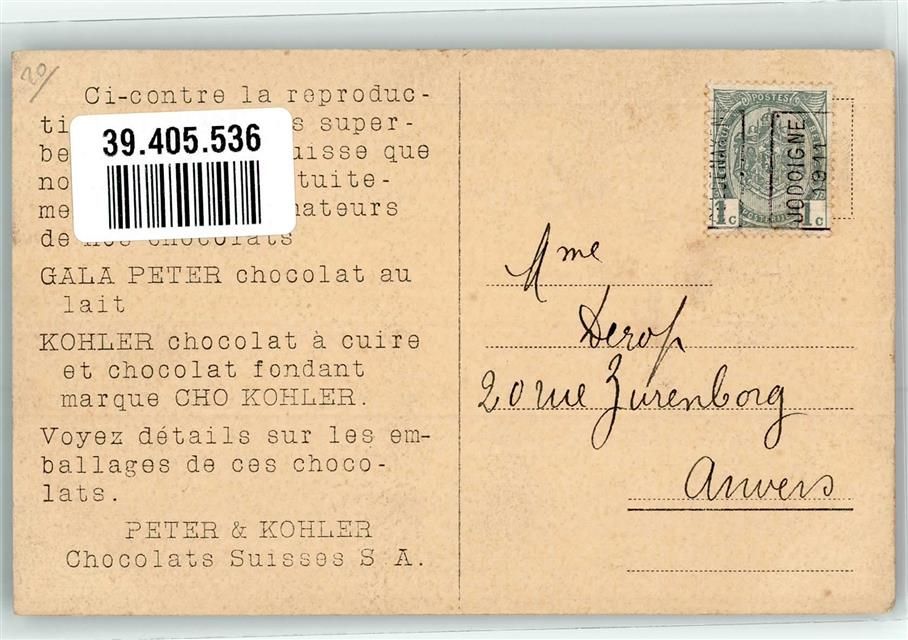 20/
Ci-contre la reproduc-
ti s super-
be uisse que
no tuite-
me mateurs
de nos chocolats
GALA PETER chocolat au
lait
KOHLER chocolat à cuire
et chocolat fondant
marque CHO KOHLER.
Voyez détails sur les em-
ballages de ces choco-
lats.
PETER & KOHLER
Chocolats Suisses S A.
39.405.536
POSTES
POSTERIJEN
1c 1c
JODOIGNE
1911
GELDENAKEN
Mme
Derop
20 rue Zurenborg
Anvers